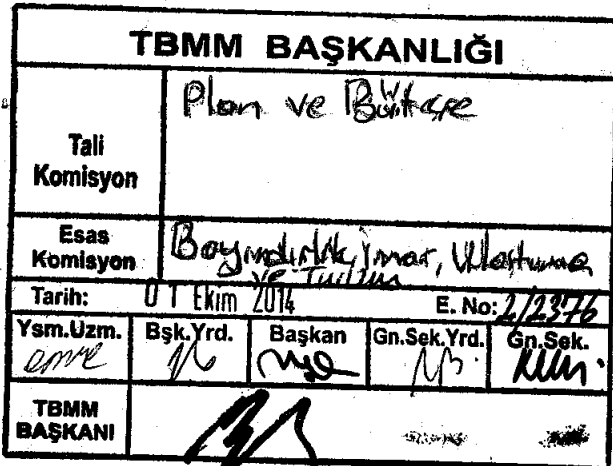 TBMM BAŞKANLIĞI
Tali Komisyon
Plan ve Bütçe
Esas Komisyon
Bayındırlık, İmar, Ulaştırma
ve Turizm
Tarih: 01 Ekim 2014 E. No: 2/2376
Ysm.Uzm. Bşk.Yrd. Başkan Gn.Sek.Yrd. Gn.Sek.
emre
TBMM
BAŞKANI